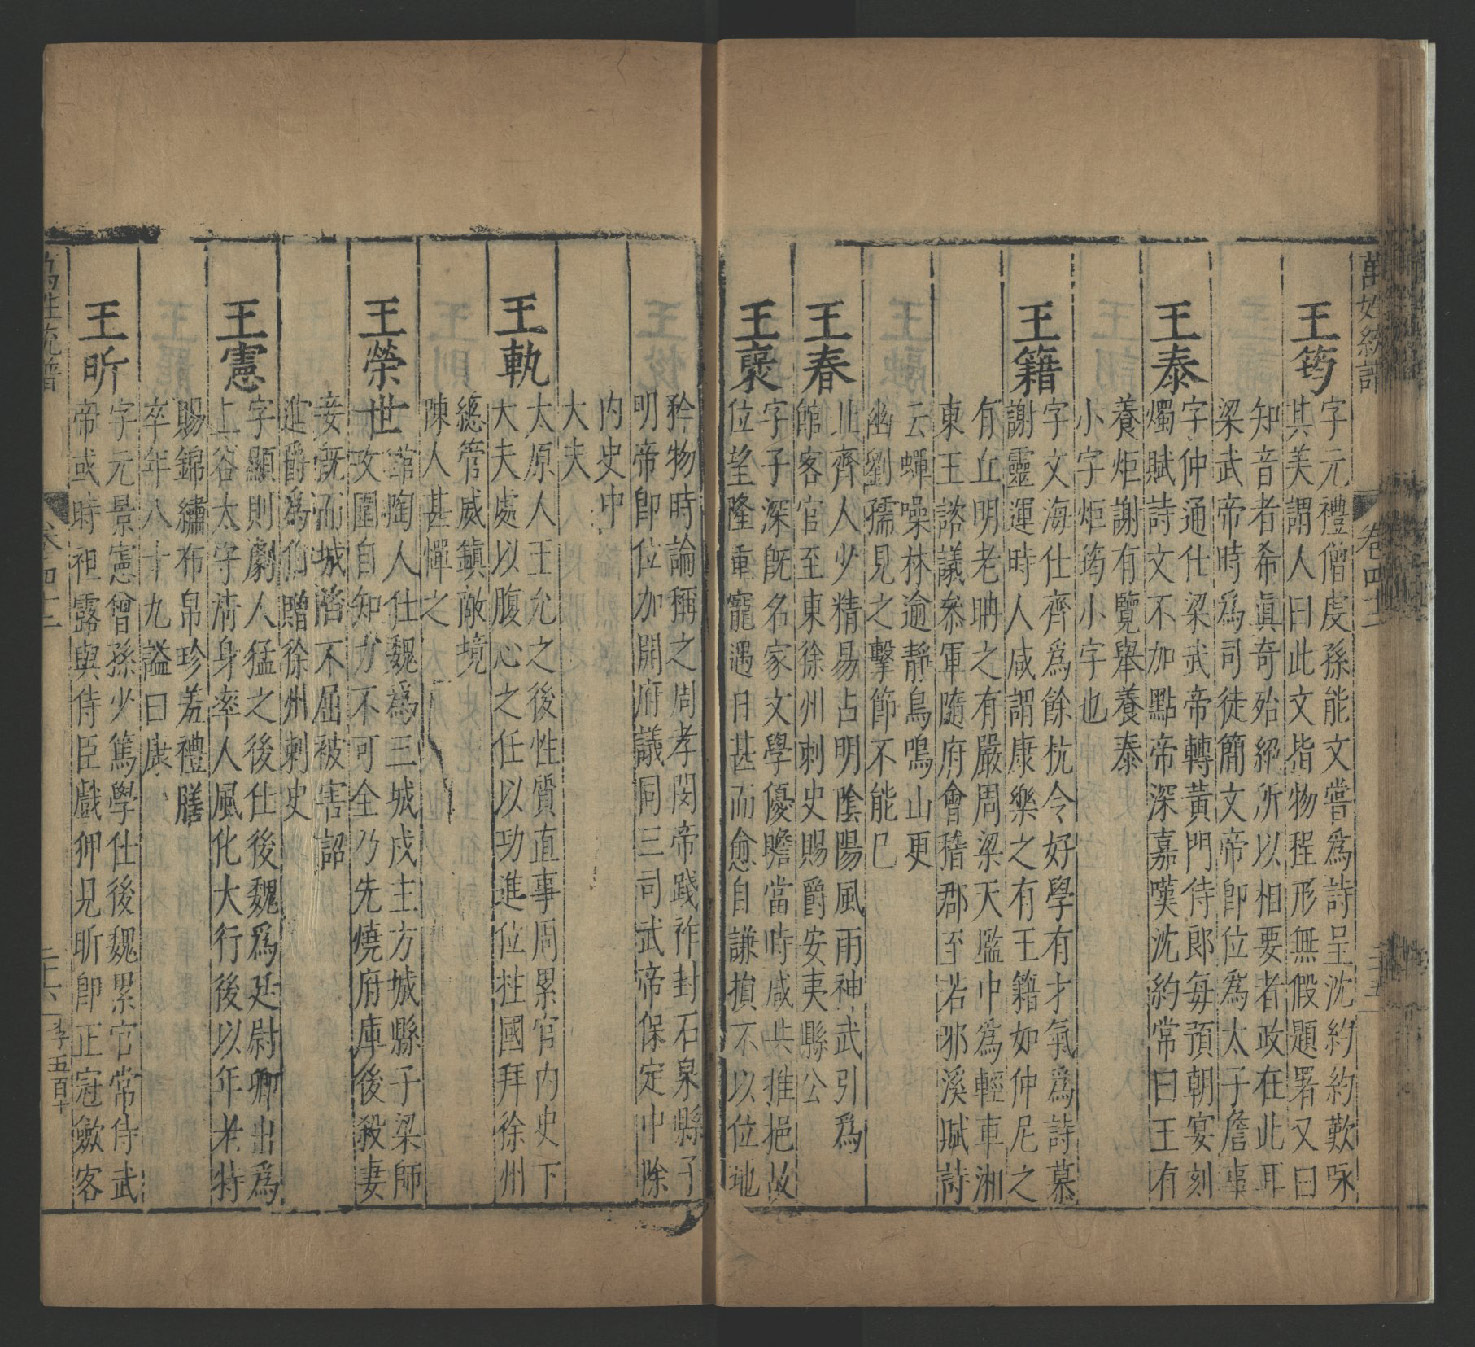 萬姓統譜
卷四十二
王筠
字元禮僧虔孫能文嘗爲詩呈沈約約歎咏
其美謂人曰此文指物程形無假題署又曰
知音者希眞奇殆絕所以相要者政在此耳
梁武帝時爲司徒簡文帝卽位爲太子詹事
王泰
字仲通仕梁武帝轉黃門侍郎每預朝宴刻
燭賦詩文不加點帝深嘉嘆沈約常曰王有
養炬謝有覽舉養泰
小字炬筠小字也
王籍
字文海仕齊爲餘杭令好學有才氣爲詩慕
謝靈運時人咸謂康樂之有王籍如仲尼之
有丘明老聃之有嚴周梁天監中爲輕車湘
東王諮議叅軍隨府會稽郡至若邪溪賦詩
云蟬噪林逾靜鳥鳴山更
幽劉孺見之擊節不能已
王春
北齊人少精易占明陰陽風雨神武引爲
館客官至東徐州刺史賜爵安夷縣公
王襃
字子深旣名家文學優贍當時咸共推挹故
位望隆重寵遇日甚而愈自謙損不以位地
矜物時論稱之周孝閔帝踐祚封石泉縣子
明帝卽位加開府議同三司武帝保定中除
內史中
大夫
王軌
太原人王允之後性質直事周累官內史下
大夫處以腹心之任以功進位拄國拜徐州
總管威鎭敵境
陳人甚憚之
王榮世
舘陶人仕魏爲三城戍主方城縣子梁師
攻圍自知力不可全乃先燒府庫後殺妻
妾旣而城陷不屈被害詔
進爵爲伯贈徐州刺史
王憲
字顯則劇人猛之後仕後魏爲廷尉卿出爲
上谷太守淸身率人風化大行後以年老特
賜錦繡布帛珍羞禮膳
卒年八十九謚曰康
王昕
字元景憲曾孫少篤學仕後魏累官常侍武
帝或時袒露與侍臣戲狎見昕卽正冠斂客
萬姓統譜
卷四十二
李五百十